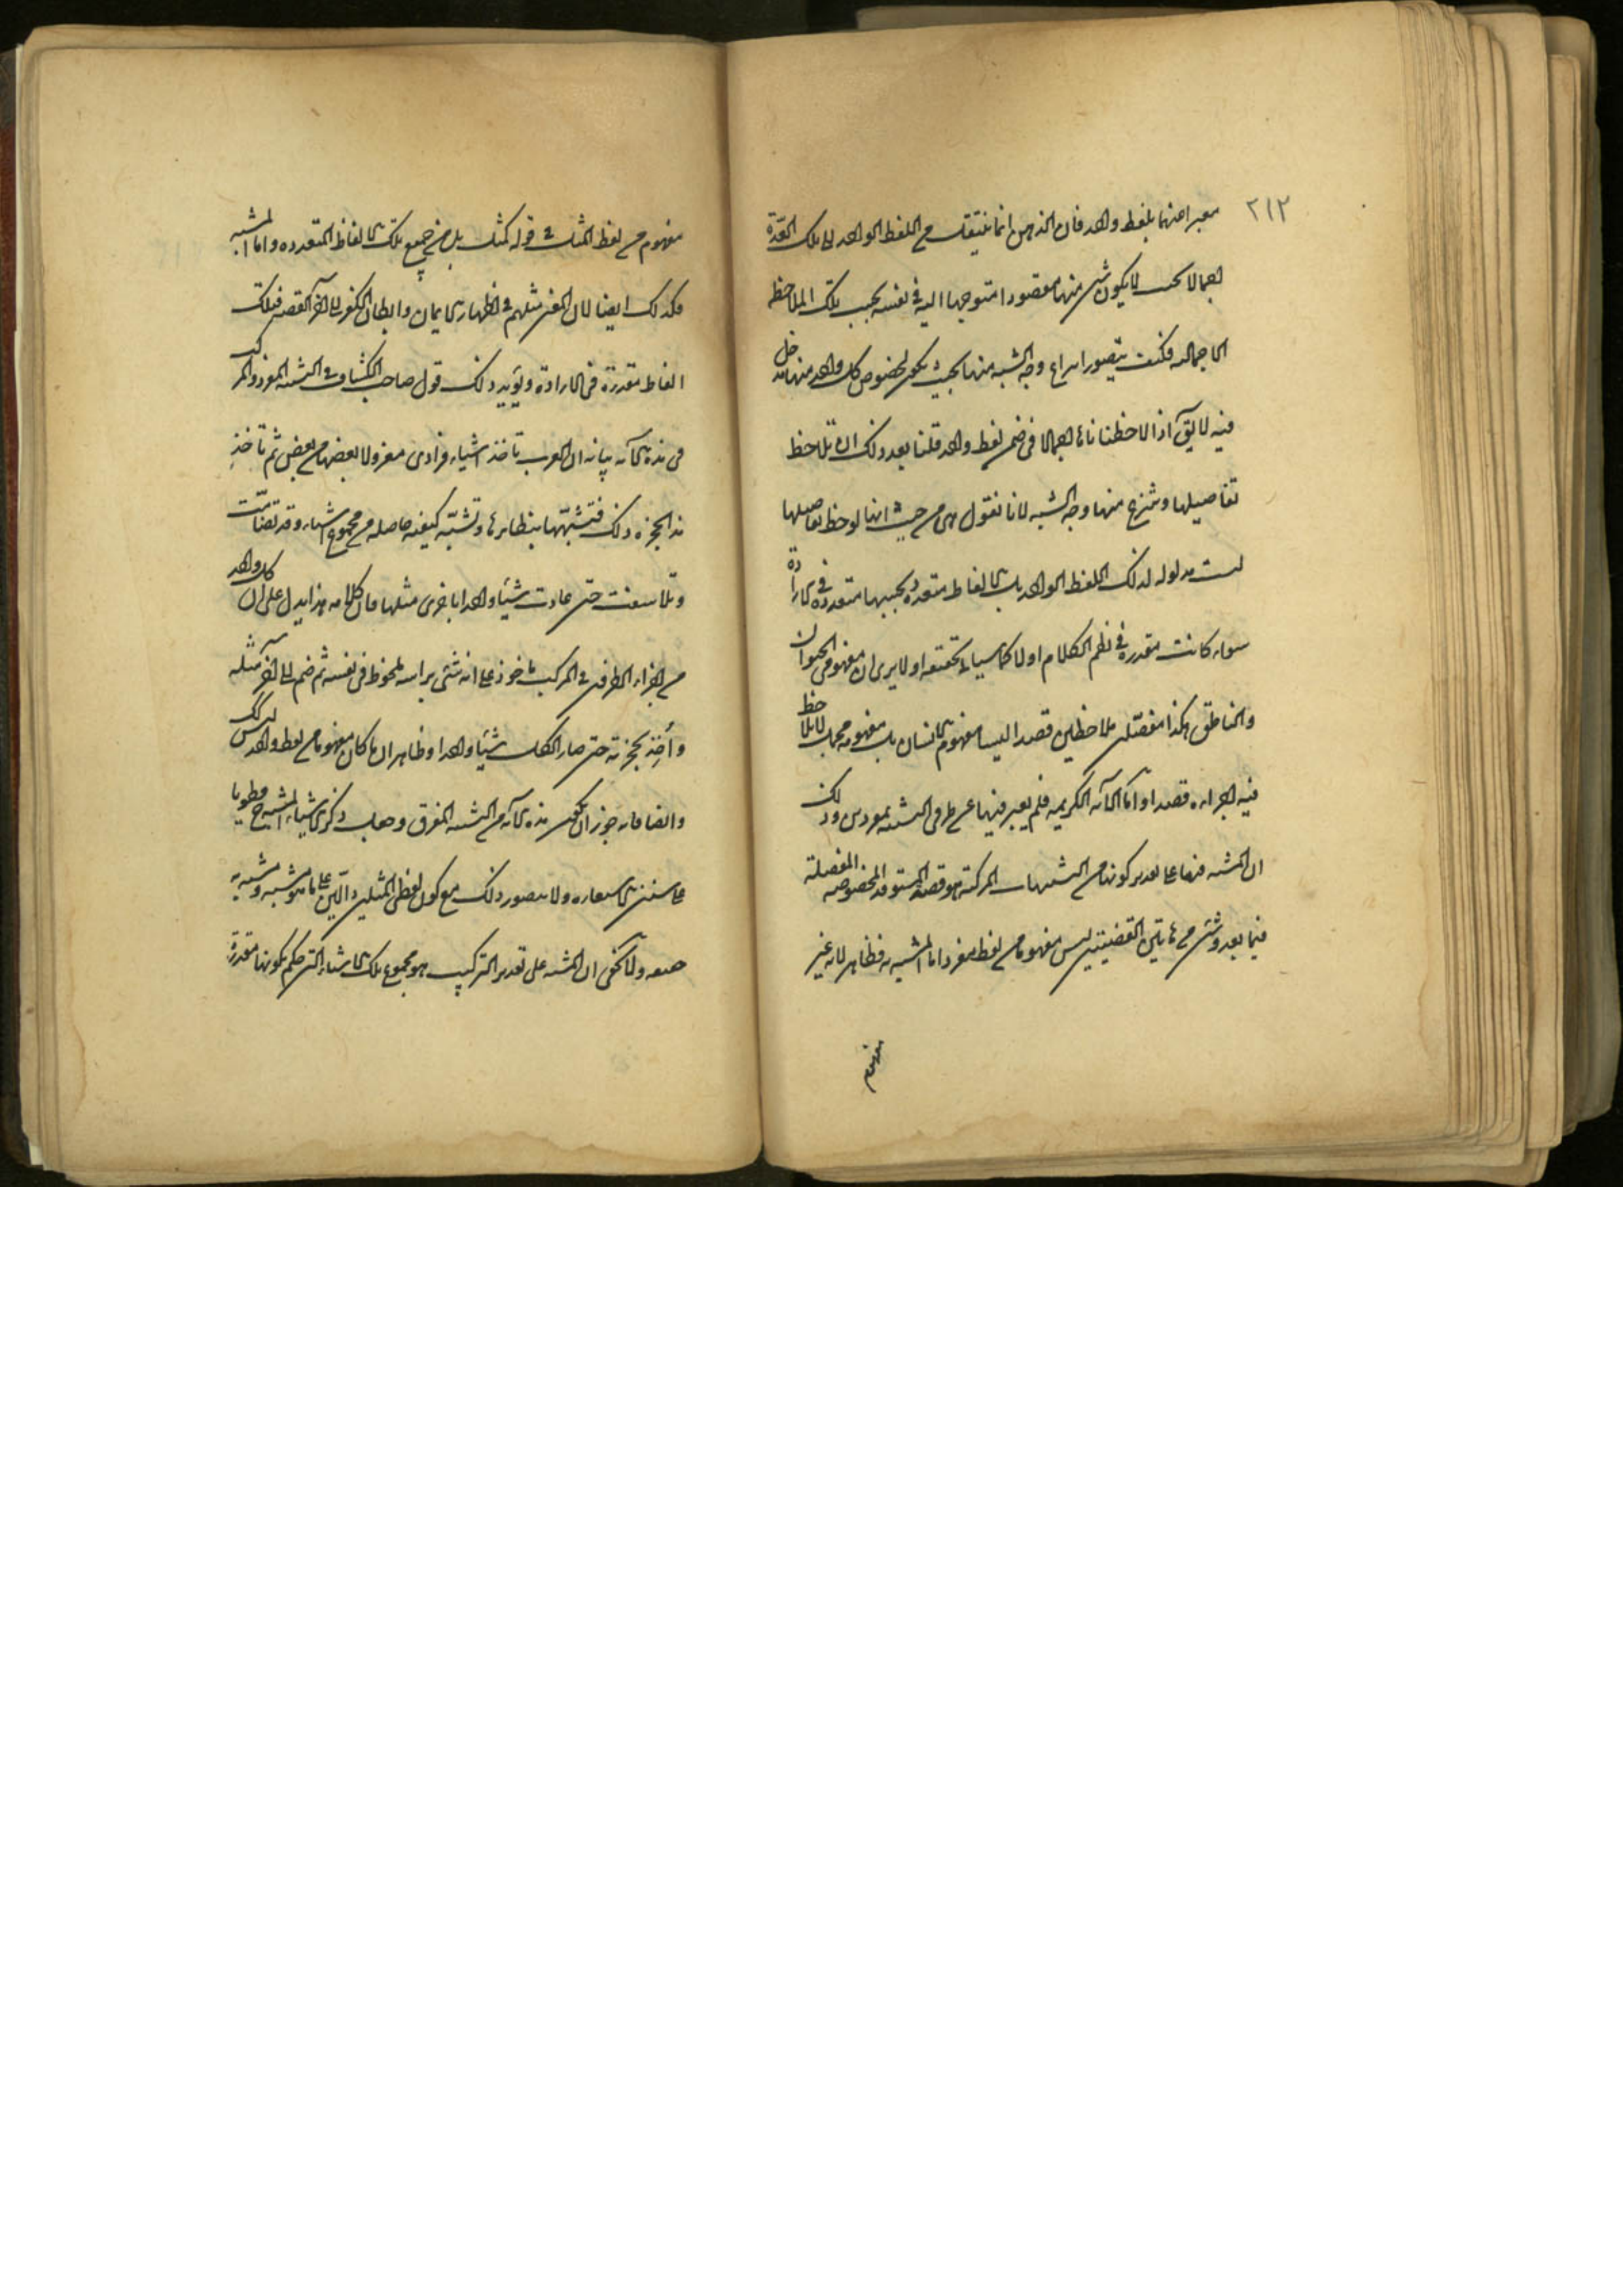 ٢١٢
معبرا عنها بلفظ واحد فان الذهن انما ينتقل من اللفظ الواحد الى تلك العدة
اجمالا بحيث لا يكون شئ منها مقصودا متوجها اليه في نفسه بحسب تلك الملاحظة
الاجمالية فكيف يتصور انتزاع وجه الشبه منها بحيث يكون لخصوص كل واحد منها مدخل
فيه لا يق اذا لاحظناها اجمالا في ضمن لفظ واحد فلنا بعد ذلك ان نلاحظ
تفاصيلها وننتزع منها وجه الشبه لانا نقول هي من حيث انها لوحظ تفاصيلها
ليست مدلولة لذلك اللفظ الواحد بل لالفاظ متعددة بحسبها متعددة في الارادة
سواء كانت مقدرة في نظم الكلام اولا كما سيأتي تحقيقه اولا يرى ان مفهومي الحيوان
والناطق هكذا مفصلين ملاحظين قصدا ليسا مفهوم الانسان بل مفهومه مجمل لا يلاحظ
فيه اجزاءه قصدا واما الآية الكريمة فلم يعبر فيها عن طرفي التشبيه بمفردين وذلك
ان المشبه فيها على تقدير كونها من التشبيهات المركبة هو قصة المستوقد المخصوصة المفصلة
فيما بعد وشئ من هاتين القضيتين ليس مفهوما من لفظ مفرد اما المشبه به فظاهر لانه غير
مفهوم
مفهوم من لفظ المثل في قوله كمثل بل من جميع تلك الالفاظ المتعددة واما المشبه
فكذلك ايضا لان المعنى مثلهم في اظهار الايمان وابطان الكفر الى آخر القصة فتلك
الفاظ مقدرة في الارادة ويؤيد ذلك قول صاحب الكشاف في التشبيه المفرد والمركب
في هذه الآية بيانه ان العرب تأخذ اشياء فرادى معزولا بعضها من بعض ثم تأخذ
هذا بحجزة ذلك فتشبهها بنظائرها وتشبه كيفية حاصلة من مجموع اشياء قد تضامت
وتلاصقت حتى عادت شيئا واحدا باخرى مثلها فان كلامه هذا يدل على ان كل واحد
من اجزاء الطرفين في المركب مأخوذ على انه شئ براسه ملحوظ في نفسه ثم ضم الى آخر مثله
وأخذ بحجزته حتى صار الكل شيئا واحدا وظاهر ان ما كان مفهوما من لفظ واحد ليس كذلك
وايضا فانه جوز ان يكون هذه الآية من التشبيه المفرق وجعل ذكر الاشياء المشبهة مطويا
على سنن الاستعارة ولا يتصور ذلك مع كون لفظي المثل دالين على ما هو مشبه ومشبه به
حقيقة ولا يخفى ان المشبه على تقدير التركيب هو مجموع تلك الاشياء التي حكم بكونها مقدرة